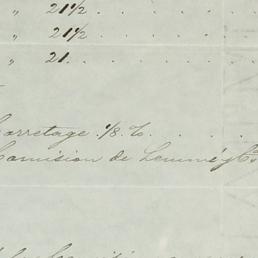 " 21 1/2 . . . . .
" 21 1/2 . . . . .
" 21. . . . . .
Carretage 1/8 %. . . .
Comision de Lemmé y Ca